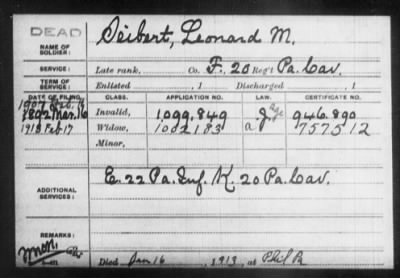 DEAD
NAME OF SOLDIER: Seibert, Leonard M.
SERVICE: Late rank, Co. F. 20 Reg't Pa. Cav.
TERM OF SERVICE: Enlisted , 1 Discharged , 1
DATE OF FILING. CLASS. APPLICATION NO. LAW. CERTIFICATE NO.
1907 Feb. 19
1892 Mar. 16 Invalid, 1,099,849 Age 946.890
1913 Feb 17 Widow, 1002183 a 757512
Minor,
ADDITIONAL SERVICES: E. 22 Pa. Inf. K. 20 Pa. Cav.
Died Jan 16 , 1913, at Phil Pa